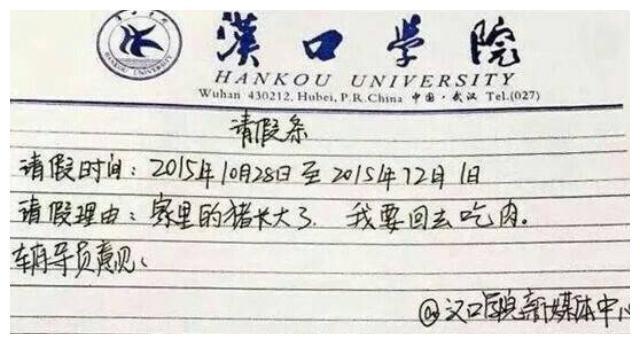 漢口學院
HANKOU UNIVERSITY
Wuhan 430212, Hubei, P.R.China 中国·武汉 Tel.(027)
HANKOU UNIVERSITY
请假条
请假时间：2015年10月28日至2015年12月1日
请假理由：家里的猪长大了．我要回去吃肉。
辅导员意见：
@汉口学院新媒体中心